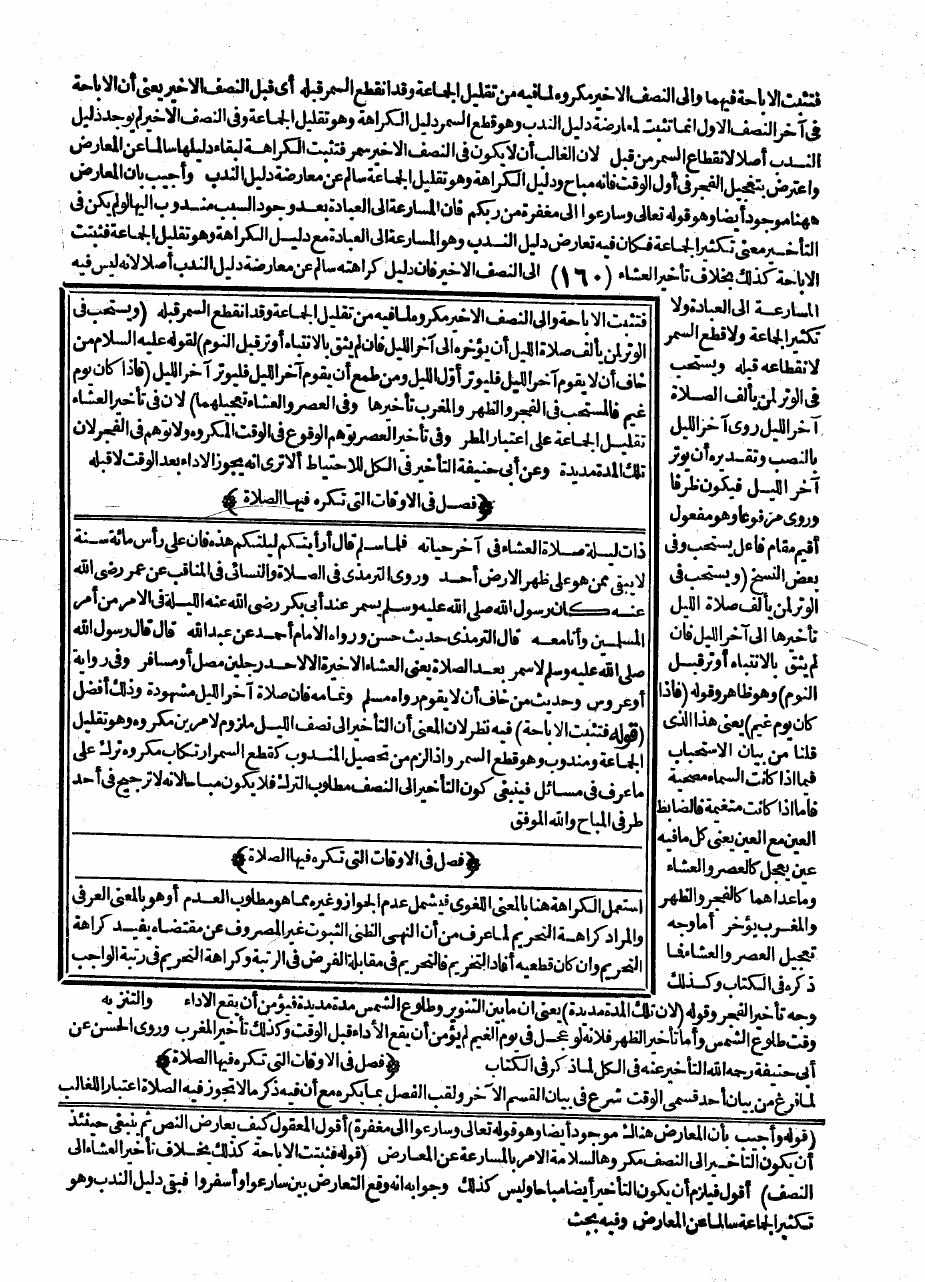 فتثبت الاباحة فيهما والى النصف الاخير مكروه لما فيه من تقليل الجماعة وقد انقطع السمر قبله أى قبل النصف الاخير يعنى أن الاباحة
فى آخر النصف الاول انما تثبت لمعارضة دليل الندب وهو قطع السمر دليل الكراهة وهو تقليل الجماعة وفى النصف الاخير لم يوجد دليل
الندب أصلا لانقطاع السمر من قبل لان الغالب أن لا يكون فى النصف الاخير سمر فتثبت الكراهة لبقاء دليلها سالما عن المعارض
واعترض بتعجيل الفجر فى أول الوقت فانه مباح ودليل الكراهة وهو تقليل الجماعة سالم عن معارضة دليل الندب وأجيب بان المعارض
ههنا موجود أيضا وهو قوله تعالى وسارعوا الى مغفرة من ربكم فان المسارعة الى العبادة بعد وجود السبب مندوب اليها ولم يكن فى
التأخير معنى تكثير الجماعة فكان فيه تعارض دليل الندب وهو المسارعة الى العبادة مع دليل الكراهة وهو تقليل الجماعة فثبتت
الاباحة كذلك بخلاف تأخير العشاء (١٦٠) الى النصف الاخير فان دليل كراهته سالم عن معارضة دليل الندب أصلا لانه ليس فيه
المسارعة الى العبادة ولا
تكثير الجماعة ولا قطع السمر
لانقطاعه قبله ويستحب
فى الوتر لمن يألف الصلاة
آخر الليل روى آخر الليل
بالنصب وتقديره أن يوتر
آخر الليل فيكون ظرفا
وروى مرفوعا وهو مفعول
أقيم مقام فاعل يستحب وفى
بعض النسخ (ويستحب فى
الوتر لمن يألف صلاة الليل
تأخيرها الى آخر الليل فان
لم يثق بالانتباه أوتر قبل
النوم) وهو ظاهر وقوله (فاذا
كان يوم غيم) يعنى هذا الذى
قلنا من بيان الاستحباب
فيما اذا كانت السماء مصحية
فاما اذا كانت متغيمة فالضابط
العين مع العين يعنى كل ما فيه
عين يعجل كالعصر والعشاء
وما عداهما كالفجر والظهر
والمغرب يؤخر أما وجه
تعجيل العصر والعشاء فما
ذكره فى الكتاب وكذلك
فتثبت الاباحة والى النصف الاخير مكروه لما فيه من تقليل الجماعة وقد انقطع السمر قبله (ويستحب فى
الوتر لمن يألف صلاة الليل أن يؤخره الى آخر الليل فان لم يثق بالانتباه أوتر قبل النوم) لقوله عليه السلام من
خاف أن لا يقوم آخر الليل فليوتر أول الليل ومن طمع أن يقوم آخر الليل فليوتر آخر الليل (فاذا كان يوم
غيم فالمستحب فى الفجر والظهر والمغرب تأخيرها وفى العصر والعشاء تعجيلهما) لان فى تأخير العشاء
تقليل الجماعة على اعتبار المطر وفى تأخير العصر توهم الوقوع فى الوقت المكروه ولا توهم فى الفجر لان
تلك المدة مديدة وعن أبى حنيفة التأخير فى الكل للاحتياط ألا ترى انه يجوز الاداء بعد الوقت لا قبله
﴿فصل فى الاوقات التى تكره فيها الصلاة﴾
ذات ليلة صلاة العشاء فى آخر حياته فلما سلم قال أرأيتكم ليلتكم هذه فان على رأس مائة سنة
لا يبقى ممن هو على ظهر الارض أحد وروى الترمذى فى الصلاة والنسائى فى المناقب عن عمر رضى الله
عنه كان رسول الله صلى الله عليه وسلم يسمر عند أبى بكر رضى الله عنه الليلة فى الامر من أمر
المسلمين وأنا معه قال الترمذى حديث حسن ورواه الامام أحمد عن عبدالله قال قال رسول الله
صلى الله عليه وسلم لا سمر بعد الصلاة يعنى العشاء الاخيرة الا لاحد رجلين مصل أو مسافر وفى رواية
أو عروس وحديث من خاف أن لا يقوم رواه مسلم وتمامه فان صلاة آخر الليل مشهودة وذلك أفضل
(قوله فتثبت الاباحة) فيه نظر لان المعنى أن التأخير الى نصف الليل ملزوم لامرين مكروه وهو تقليل
الجماعة ومندوب وهو قطع السمر واذا لزم من تحصيل المندوب كقطع السمر ارتكاب مكروه ترك على
ما عرف فى مسائل فينبغى كون التأخير الى النصف مطلوب الترك فلا يكون مباحا لانه لا ترجيح فى أحد
طرفى المباح والله الموفق
﴿فصل فى الاوقات التى تكره فيها الصلاة﴾
استعمل الكراهة هنا بالمعنى اللغوى فيشمل عدم الجواز وغيره مما هو مطلوب العدم أو هو بالمعنى العرفى
والمراد كراهة التحريم لما عرف من أن النهى الظنى الثبوت غير المصروف عن مقتضاه يفيد كراهة
التحريم وان كان قطعيه أفاد التحريم فالتحريم فى مقابلة الفرض فى الرتبة وكراهة التحريم فى رتبة الواجب
والتنزيه
وجه تأخير الفجر وقوله (لان تلك المدة مديدة) يعنى ان ما بين التنوير وطلوع الشمس مدة مديدة فيؤمن أن يقع الاداء
وقت طلوع الشمس وأما تأخير الظهر فلانه لو عجل فى يوم الغيم لم يؤمن أن يقع الأداء قبل الوقت وكذلك تأخير المغرب وروى الحسن عن
أبى حنيفة رحمه الله التأخير عنه فى الكل لما ذكر فى الكتاب ﴿فصل فى الاوقات التى تكره فيها الصلاة﴾
لما فرغ من بيان أحد قسمى الوقت شرع فى بيان القسم الآخر ولقب الفصل بما يكره مع أن فيه ذكر ما لا تجوز فيه الصلاة اعتبارا للغالب
(قوله وأجيب بأن المعارض هناك موجود أيضا وهو قوله تعالى وسارعوا الى مغفرة) أقول المعقول كيف يعارض النص ثم ينبغى حينئذ
أن يكون التأخير الى النصف مكروها لسلامة الامر بالمسارعة عن المعارض (قوله فثبتت الاباحة كذلك بخلاف تأخير العشاء الى
النصف) أقول فيلزم أن يكون التأخير أيضا مباحا وليس كذلك وجوابه انه وقع التعارض بين سارعوا وأسفروا فبقى دليل الندب وهو
تكثير الجماعة سالما عن المعارض وفيه بحث